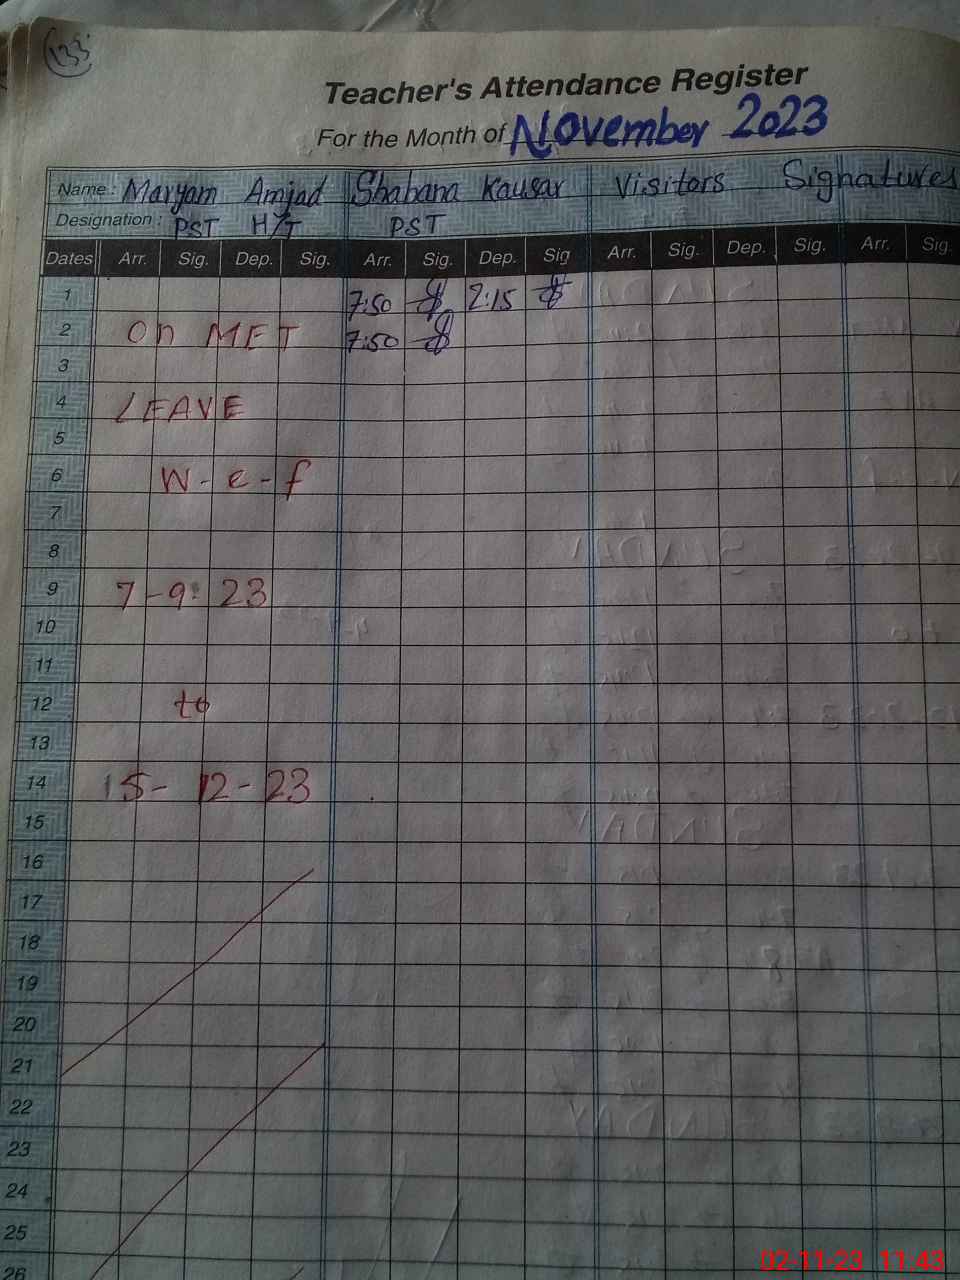 133
Teacher's Attendance Register
For the Month of November 2023
Name : Maryam Amjad Shabana Kausar Visitors Signatures
Designation : PST H/T PST
Dates Arr. Sig. Dep. Sig. Arr. Sig. Dep. Sig Arr. Sig. Dep. Sig. Arr. Sig.
1 7:50 2:15
2 On MET 7:50
3
4 LEAVE
5
6 W-e-f
7
8
9 7-9-23
10
11
12 to
13
14 15-12-23
15
16
17
18
19
20
21
22
23
24
25
26
02-11-23 11:43